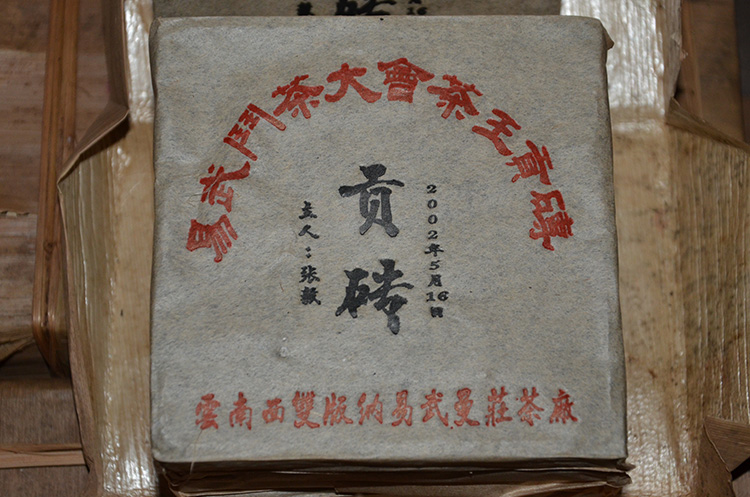 易武鬥茶大會茶王貢磚
2002年5月16日
贡砖
主人：张毅
雲南西雙版纳易武曼莊茶廠